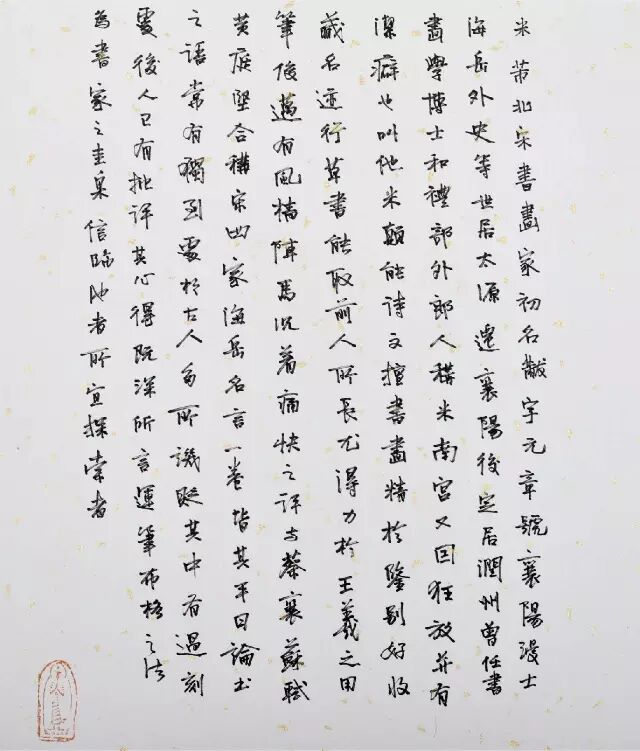 米芾北宋書畫家初名黻字元章號襄陽漫士
海岳外史等世居太原遷襄陽後定居潤州曾任書
畫學博士和禮部外郎人稱米南宮又因狂放并有
潔癖也叫他米顛能詩文擅書畫精於鑒别好收
藏名迹行草書能取前人所長尤得力於王羲之用
筆俊邁有風檣陣馬沉着痛快之評与蔡襄蘇軾
黄庭堅合稱宋四家海岳名言一卷皆其平日論書
之語常有獨到處於古人多所譏貶其中有過刻
處後人已有批評其心得既深所言運筆布格之法
為書家之圭臬信臨池者所宜探索者